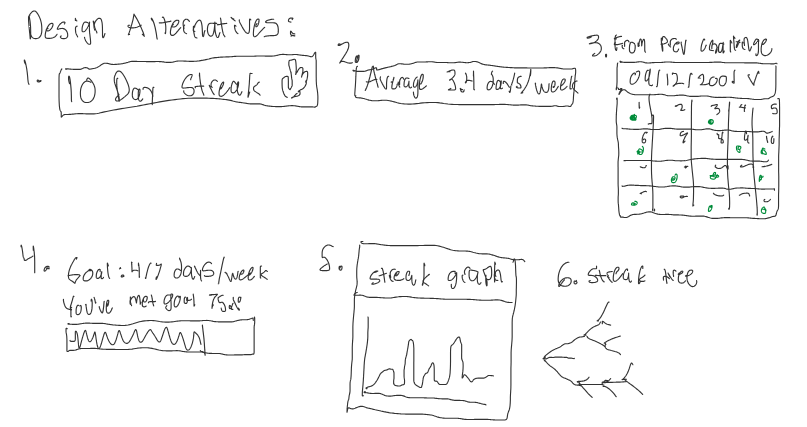 Design Alternatives:
1.
10 Day Streak
2.
Average 3.4 days/week
3. From Prev challenge
09/12/2001 V
1 2 3 4 5
6 9 8 9 10
4. Goal: 4/7 days/week
You've met goal 75%
5.
streak graph
6. streak tree